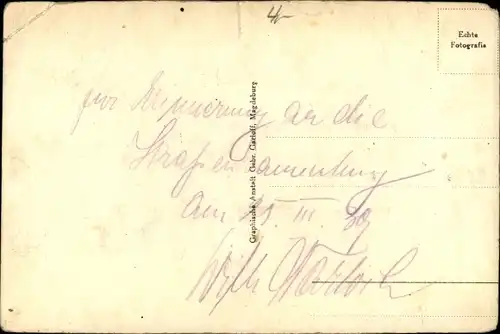 4.-
Echte
Fotografie
zur Erinnerung an die
Straßensammlung
am 25. III. 39
Graphische Anstalt Gebr. Garloff, Magdeburg